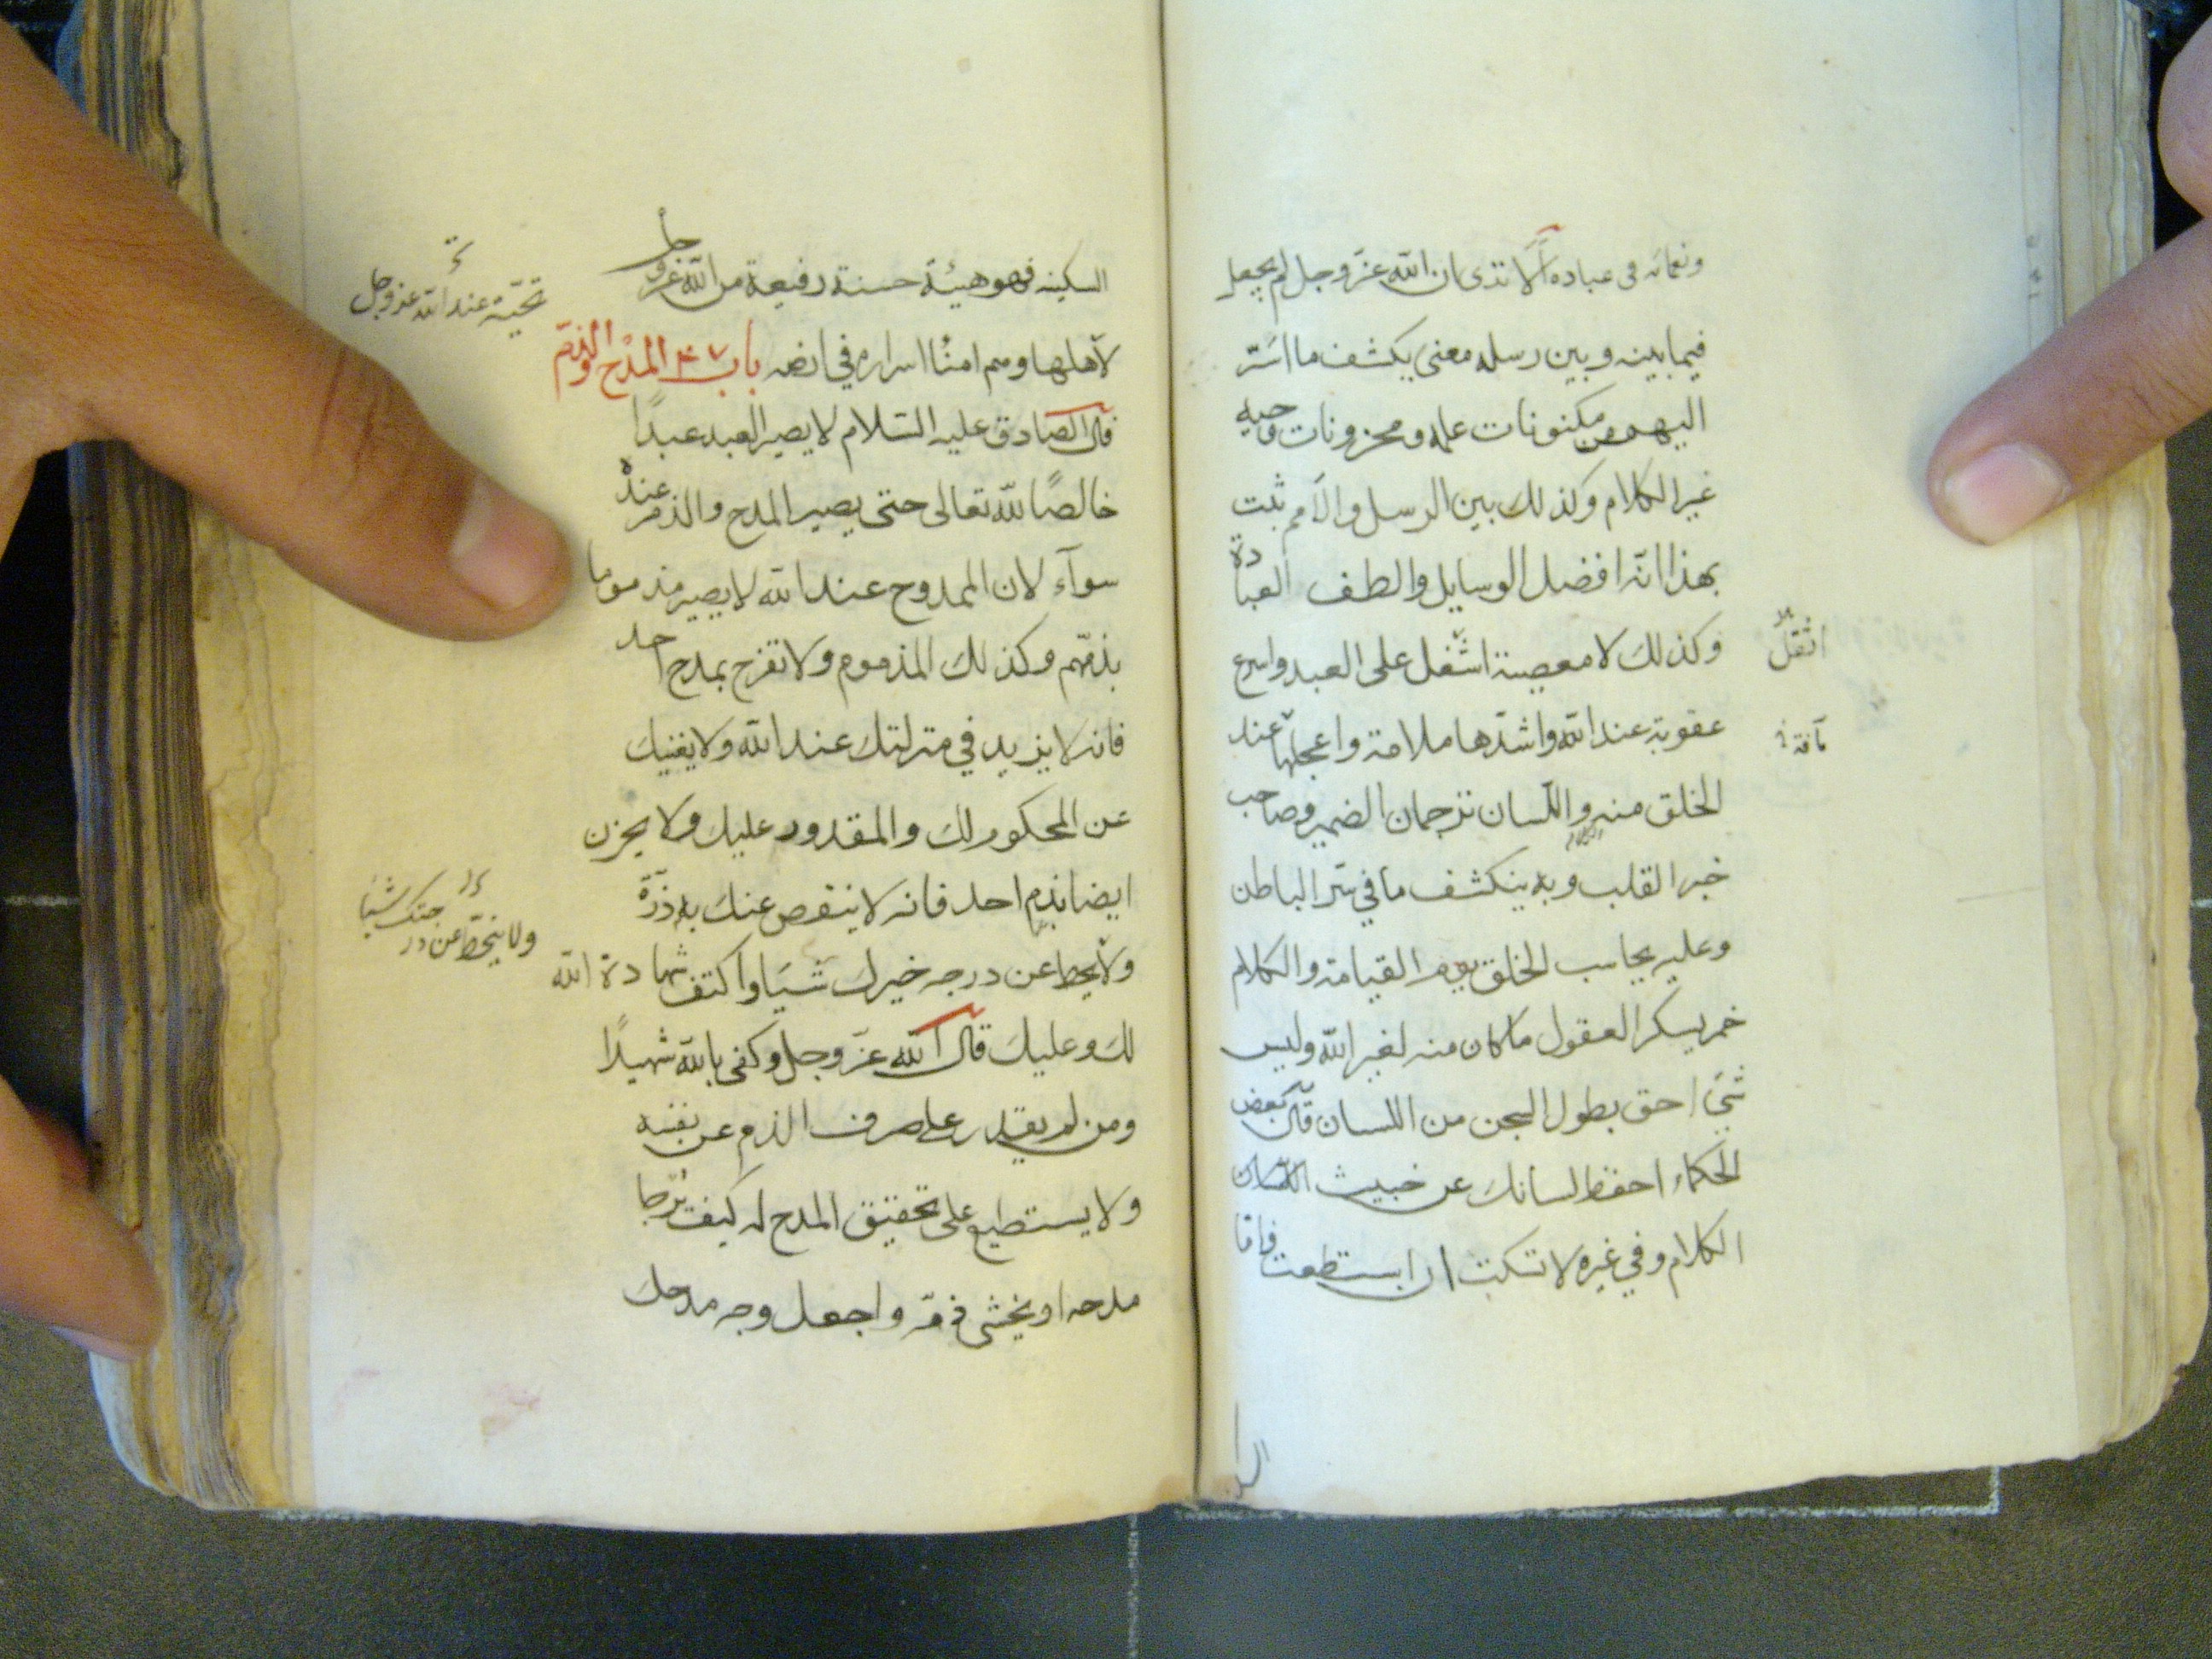 ونعمائه فى عباده ألا ترى ان الله عز وجل لم يجعل
فيما بينه وبين رسله معنى يكشف ما اسّر
اليهم من مكنونات علمه ومخزونات وحيه
غير الكلام وكذلك بين الرسل والامم ثبت
بهذا انه افضل الوسايل والطف العبادة
وكذلك لا معصية اشغل على العبد واسرع
اثقل
عقوبة عند الله واشدها ملامة واعجلها عند
الخلق منه واللسان ترجمان الضمير وصاحب
خبر القلب وبه ينكشف ما في سر الباطن
وعليه يحاسب الخلق يوم القيامة والكلام
خمر يسكر العقول ما كان منه لغير الله وليس
شئ احق بطول السجن من اللسان قال بعض
الحكماء احفظ لسانك عن خبيث
الكلام وفي غيره لا تسكت ان استطعت فاما
السكينة فهو هيئة حسنة رفيعة من الله عز وجل
عند الله عز وجل
لاهلها وهم امنا اسراره في ارضه باب المدح والذم
قال الصادق عليه السلام لا يصير العبد عبدًا
خالصًا لله تعالى حتى يصير المدح والذم عنده
سوآء لان الممدوح عند الله لا يصير مذموما
بذمهم وكذلك المذموم ولا تفرح بمدح احد
فانه لا يزيد في منزلتك عند الله ولا يغنيك
عن المحكوم لك والمقدور عليك ولا يحزن
ايضا بذم احد فانه لا ينقص عنك به ذرّة
ولا يحط عن درجه خيرك شيا واكتف شهادة الله
ولا ينحط عن درجتك شيئا
لك وعليك قال الله عز وجل وكفى بالله شهيدًا
ومن لم يقدر على صرف الذم عن نفسه
ولا يستطيع على تحقيق المدح له كيف يرجا
مدحه او يخشى ذمه واجعل وجه مدحك